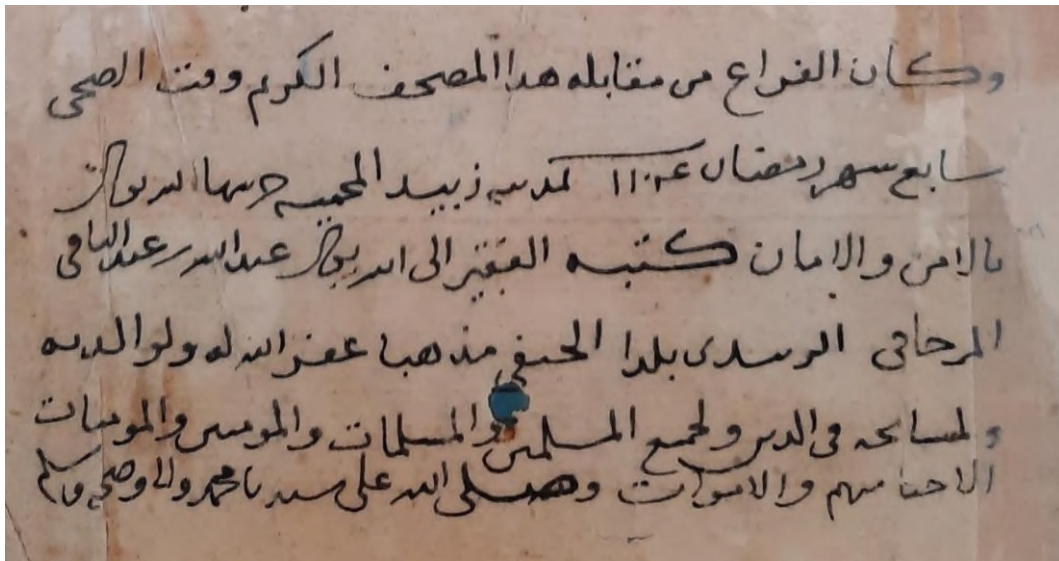 وكان الفراغ من مقابلة هذا المصحف الكريم وقت الضحى
سابع شهر رمضان سنة بمدينة زبيد المحمية حرسها الله تعالى
بالامن والامان كتبه الفقير الى الله تعالى عبد الله بن عبد الباقي
الزبيدي بلدا الحنفي مذهبا غفر الله له ولوالديه
ولمشايخه في الدين ولجميع المسلمين والمسلمات والمومنين والمومنات
الاحيا منهم والاموات وصلى الله على سيدنا محمد واله وصحبه وسلم